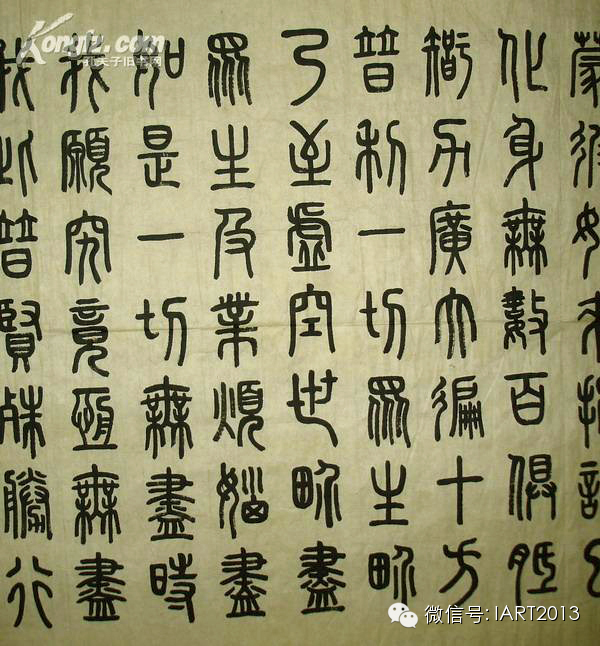 蒙彼如來授記已
化身無數百俱胝
智力廣大徧十方
普利一切眾生界
乃至虛空世界盡
眾生及業煩惱盡
如是一切無盡時
我願究竟恆無盡
我此普賢殊勝行
Kongfz.com
孔夫子旧书网
微信号: IART2013